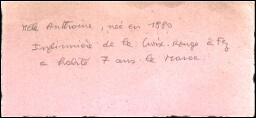 Mlle Anthoine, née en 1880
Infirmière de la Croix-Rouge à Fez
a habité 7 ans le Maroc